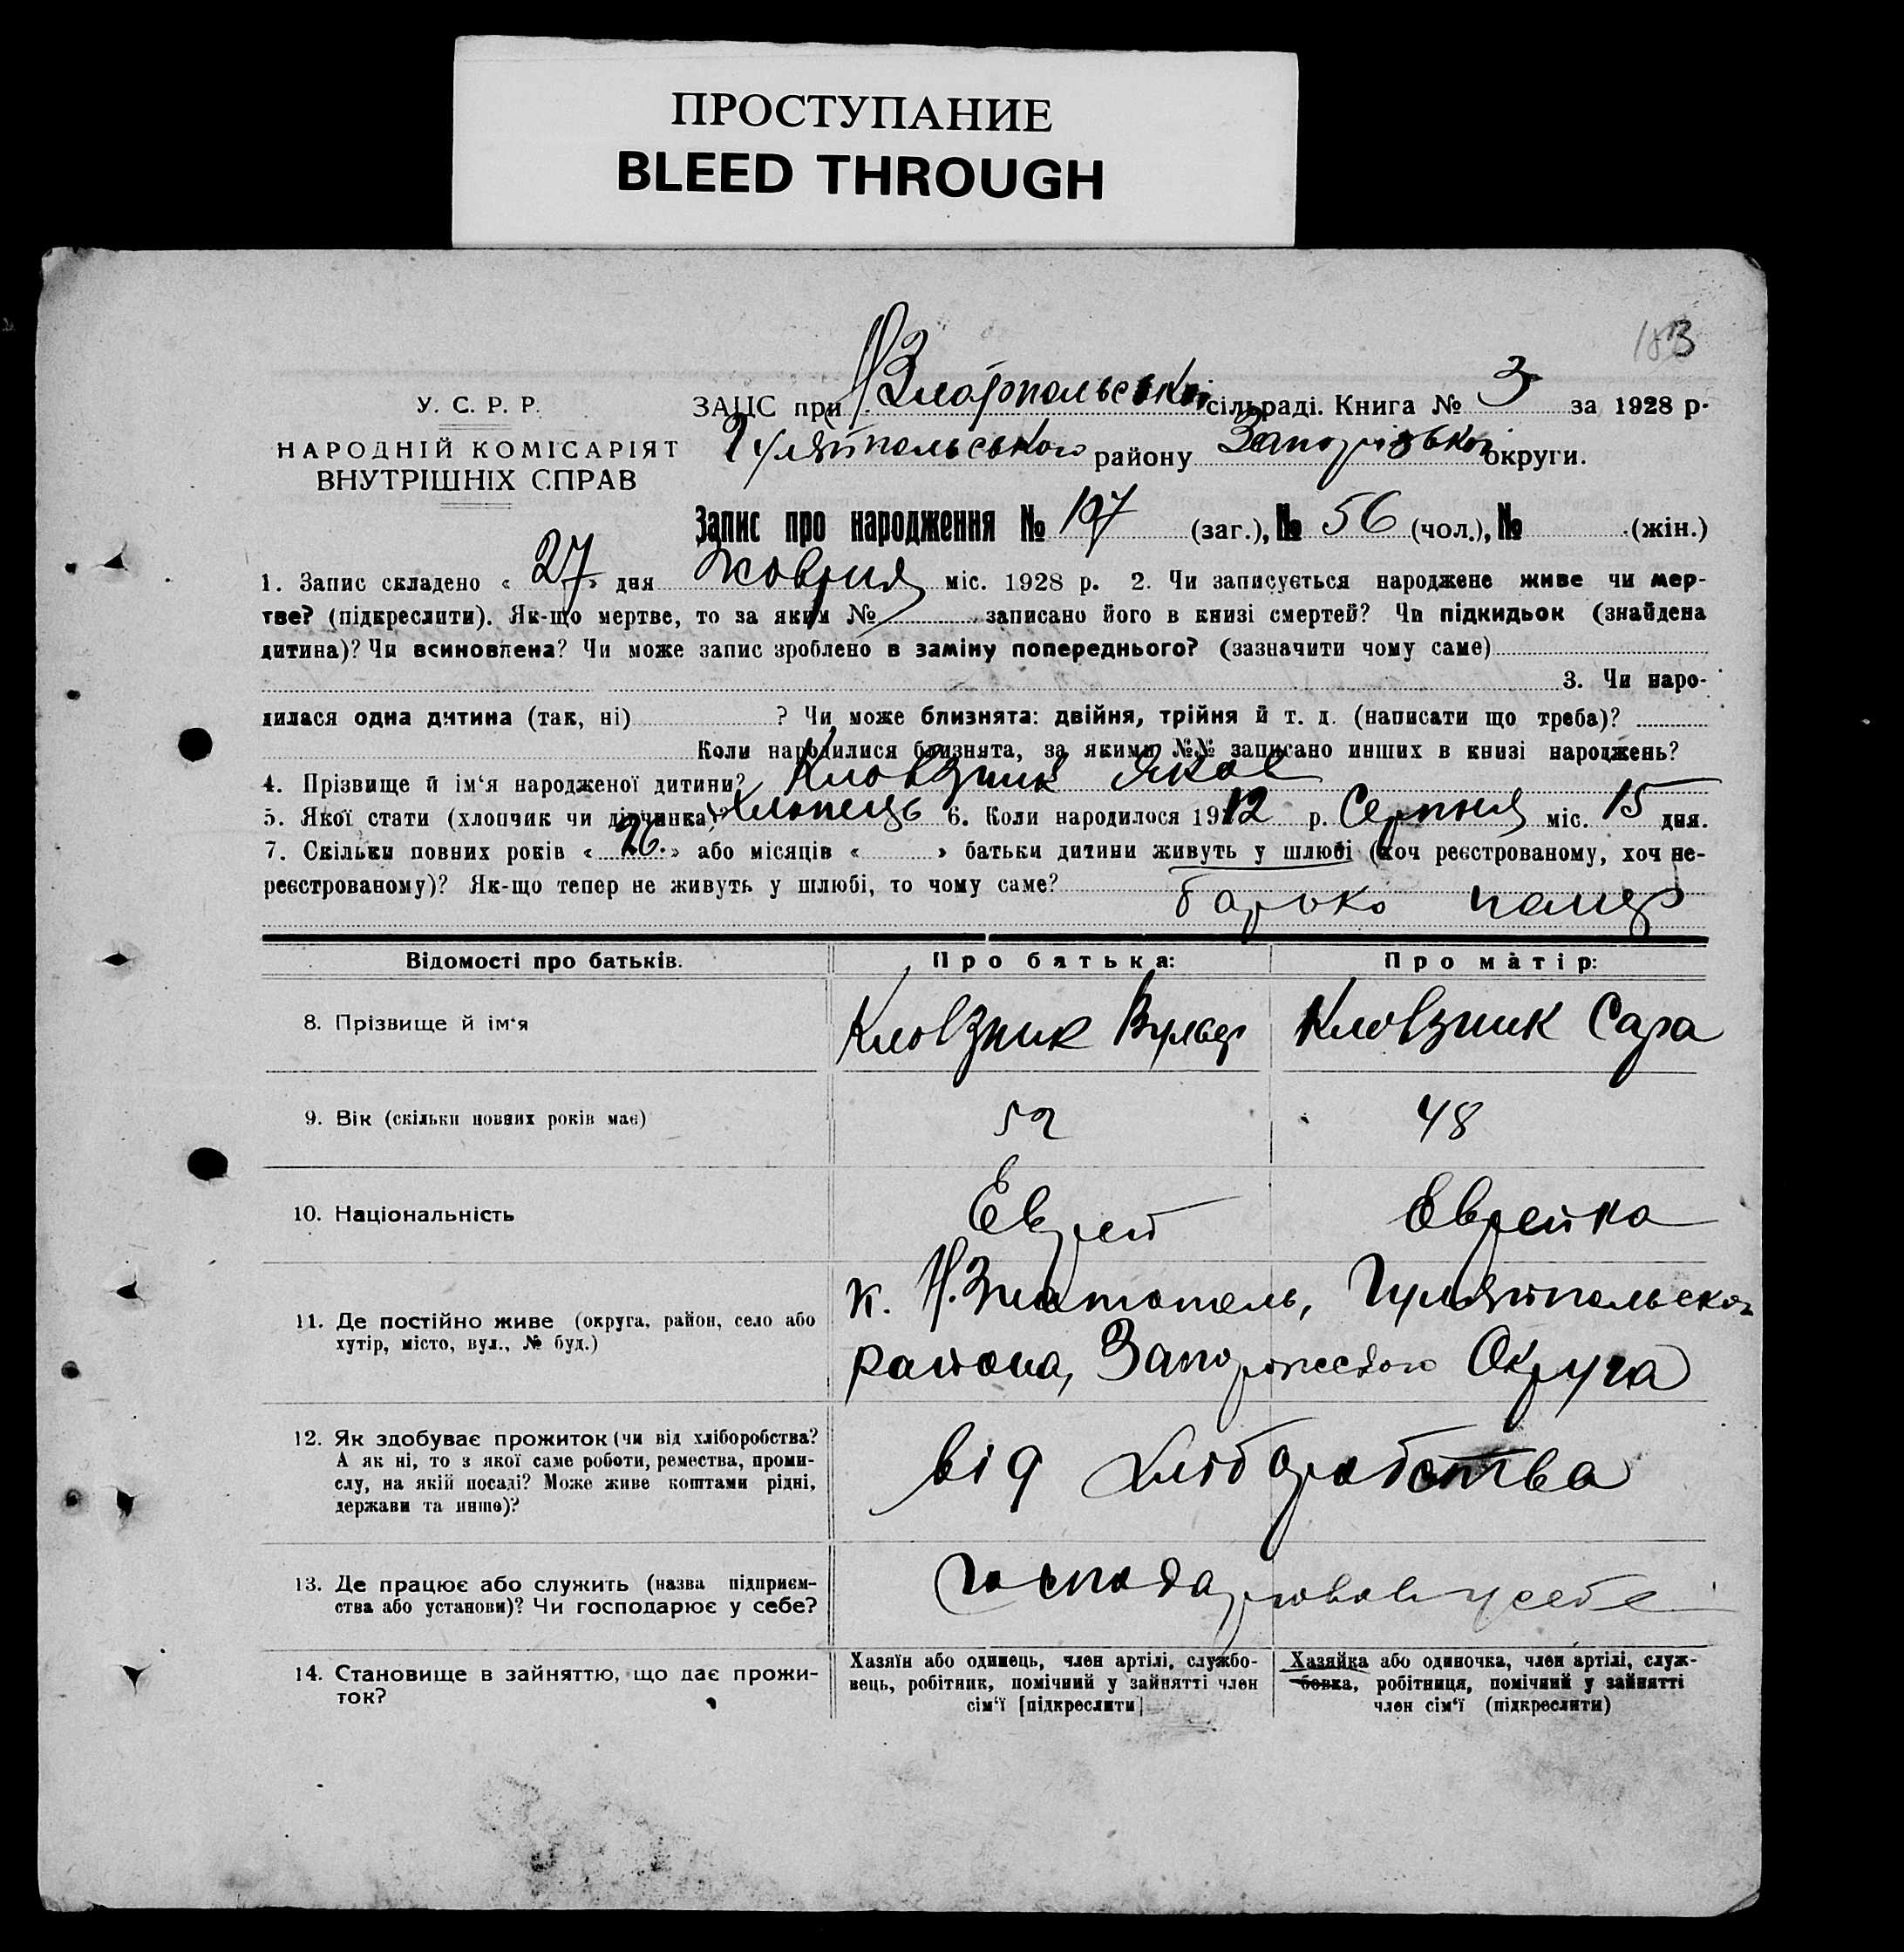 ПРОСТУПАНИЕ
BLEED THROUGH
183
У. С. Р. Р.
НАРОДНІЙ КОМІСАРІЯТ
ВНУТРІШНІХ СПРАВ
ЗАЦС при Н Златопольській сільраді. Книга № 3 за 1928 р.
Гуляйпольського району Запорізької округи.
Запис про народження № 197 (заг.), № 56 (чол.), № (жін.)
1. Запис складено « 27 » дня жовтня міс. 1928 р. 2. Чи записується народжене живе чи мер-
тве? (підкреслити). Як-що мертве, то за яким № записано його в книзі смертей? Чи підкидьок (знайдена
дитина)? Чи всиновлена? Чи може запис зроблено в заміну попереднього? (зазначити чому саме)
3. Чи наро-
дилася одна дитина (так, ні) ? Чи може близнята: двійня, трійня й т. д. (написати що треба)?
Коли народилися близнята, за якими №№ записано инших в книзі народжень?
4. Прізвище й ім‘я народженої дитини? Кловзник Яков
5. Якої стати (хлопчик чи дівчинка)? Хлопець 6. Коли народилося 1912 р. Серпня міс. 15 дня.
7. Скільки повних років « 26. » або місяців « » батьки дитини живуть у шлюбі (хоч реєстрованому, хоч не-
реєстрованому)? Як-що тепер не живуть у шлюбі, то чому саме?
батько
Відомості про батьків. Про батька: Про матір:
8. Прізвище й ім‘я Кловзник Вульф Кловзник Сара
9. Вік (скільки повних років має) 52 48
10. Національність Еврей Еврейка
11. Де постійно живе (округа, район, село або
хутір, місто, вул., № буд.)
к. Н. Златополь, Гуляйпольског
района, Запорожского Округа
12. Як здобуває прожиток (чи від хліборобства?
А як ні, то з якої саме роботи, ремества, проми-
слу, на якій посаді? Може живе коштами рідні,
держави та инше)?
від хліборобства
13. Де працює або служить (назва підприєм-
ства або установи)? Чи господарює у себе?
господарював у себе
14. Становище в зайняттю, що дає прожи-
ток?
Хазяїн або одинець, член артілі, службо-
вець, робітник, помічний у зайнятті член
сім‘ї [підкреслити]
Хазяйка або одиночка, член артілі, служ-
бовка, робітниця, помічний у зайнятті
член сім‘ї (підкреслити)